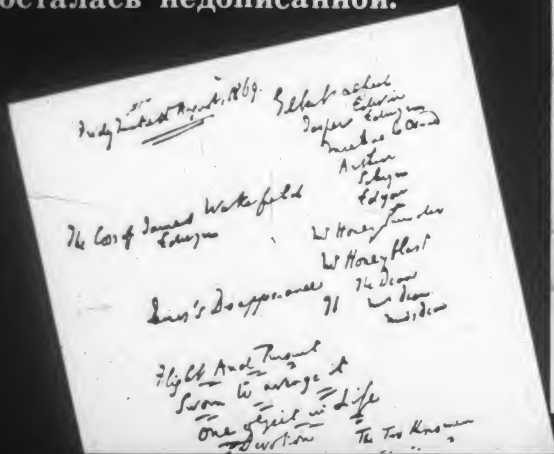 осталась недописанной.
Friday Twentieth August, 1869.
Gilbert Alfred
Edwin
Jasper Edwyn
Michael Oswald
Arthur
Selwyn
Edgar
The Loss of James Wakefield
Edwyn
Mr Honeythunder
Mr Honeyblast
James's Disappearance
The Dean
Mrs Dean
Miss Dean
Flight And Pursuit
Sworn to avenge it
One object in Life
Devotion The Two Kinsmen